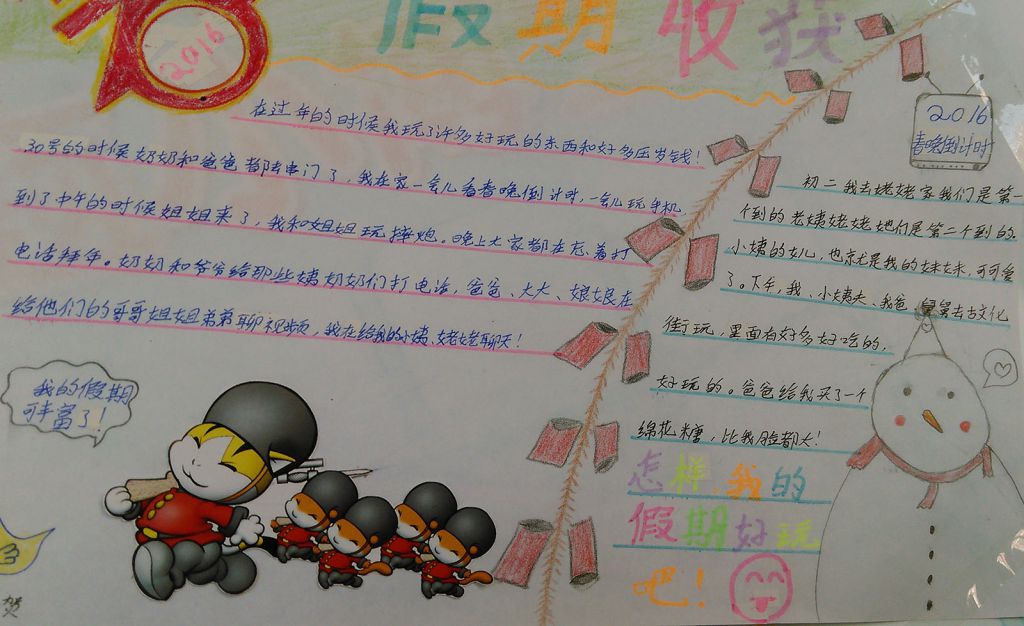 假期收获
2016
在过年的时候我玩了许多好玩的东西和好多压岁钱！
30号的时候奶奶和爸爸都去串门了，我在家一会儿看春晚倒计时，一会儿玩手机
到了中午的时候姐姐来了，我和姐姐玩摔炮。晚上大家都在忘着打
电话拜年。奶奶和爷爷给那些姨奶奶们打电话，爸爸、大大、娘娘在
给他们的哥哥姐姐弟弟聊视频，我在给我的小姨、姥姥聊天！
我的假期
可丰富了！
2016
春晚倒计时
初二我去姥姥家我们是第一
个到的老姨姥姥她们是第二个到的
小姨的女儿，也就是我的妹妹，可可爱
了。下午，我、小姨夫、我爸、舅舅去古文化
街玩，里面有好多好吃的，
好玩的。爸爸给我买了一个
绵花糖，比我脸都大！
怎样，我的
假期好玩
吧！